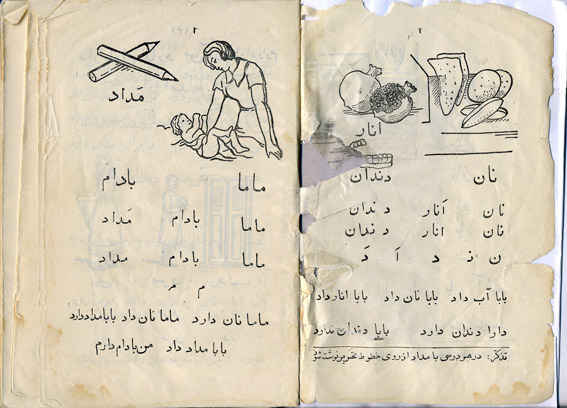 ۲
اَنار
نان دندان
نان اَنار دندان
نان انار دندان
ن نـ د ا اَ دَ
بابا آب داد بابا نان داد بابا انار داد
دارا دندان دارد بابا دندان ندارد
تذکر: در هر درسی با مداد از روی خطوط نوشته
۳
مَداد
ماما بادام
ماما بادام مَداد
ماما بادام مداد
م مـ
ماما نان دارد ماما نان داد بابا مداد دارد
بابا مداد داد من بادام دارم